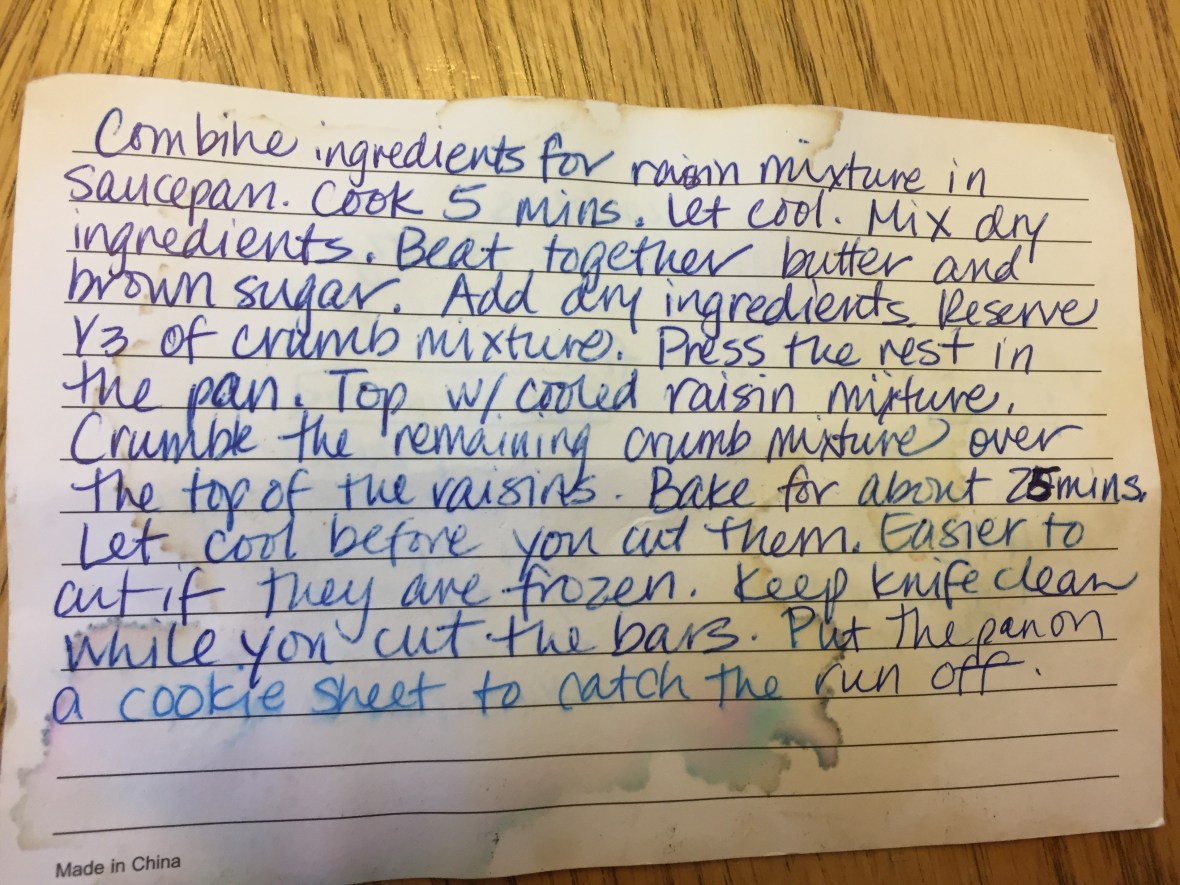 Combine ingredients for raisin mixture in
saucepan. Cook 5 mins. Let cool. Mix dry
ingredients. Beat together butter and
brown sugar. Add dry ingredients. Reserve
1/3 of crumb mixture. Press the rest in
the pan. Top w/ cooled raisin mixture.
Crumble the remaining crumb mixture over
the top of the raisins. Bake for about 25 mins.
Let cool before you cut them. Easier to
cut if they are frozen. Keep knife clean
while you cut the bars. Put the pan on
a cookie sheet to catch the run off.
Made in China